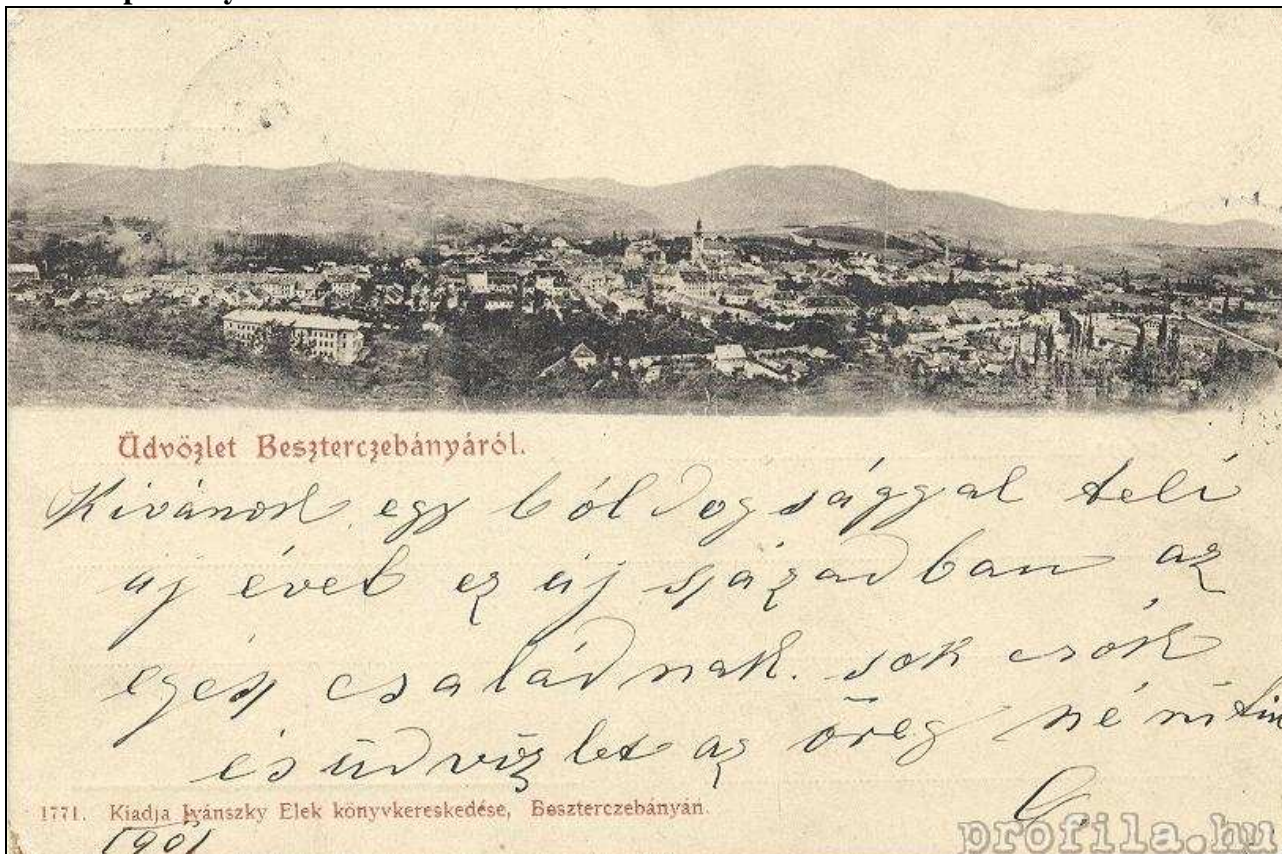 Üdvözlet Beszterczebányáról.
Kivánok egy bóldogsággal teli
uj évet ez új században az
egész családnak. sok csók
és üdvözlet az öreg
G.
1771. Kiadja Ivánszky Elek könyvkereskedése, Beszterczebányán.
1901
profila.hu